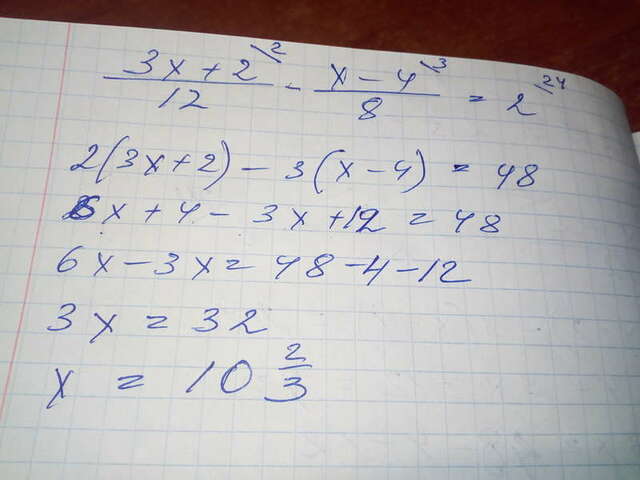 (3x+2)/12 \2 - (x-4)/8 \3 = 2 \24
2(3x+2) - 3(x-4) = 48
6x + 4 - 3x + 12 = 48
6x - 3x = 48 - 4 - 12
3x = 32
x = 10 2/3